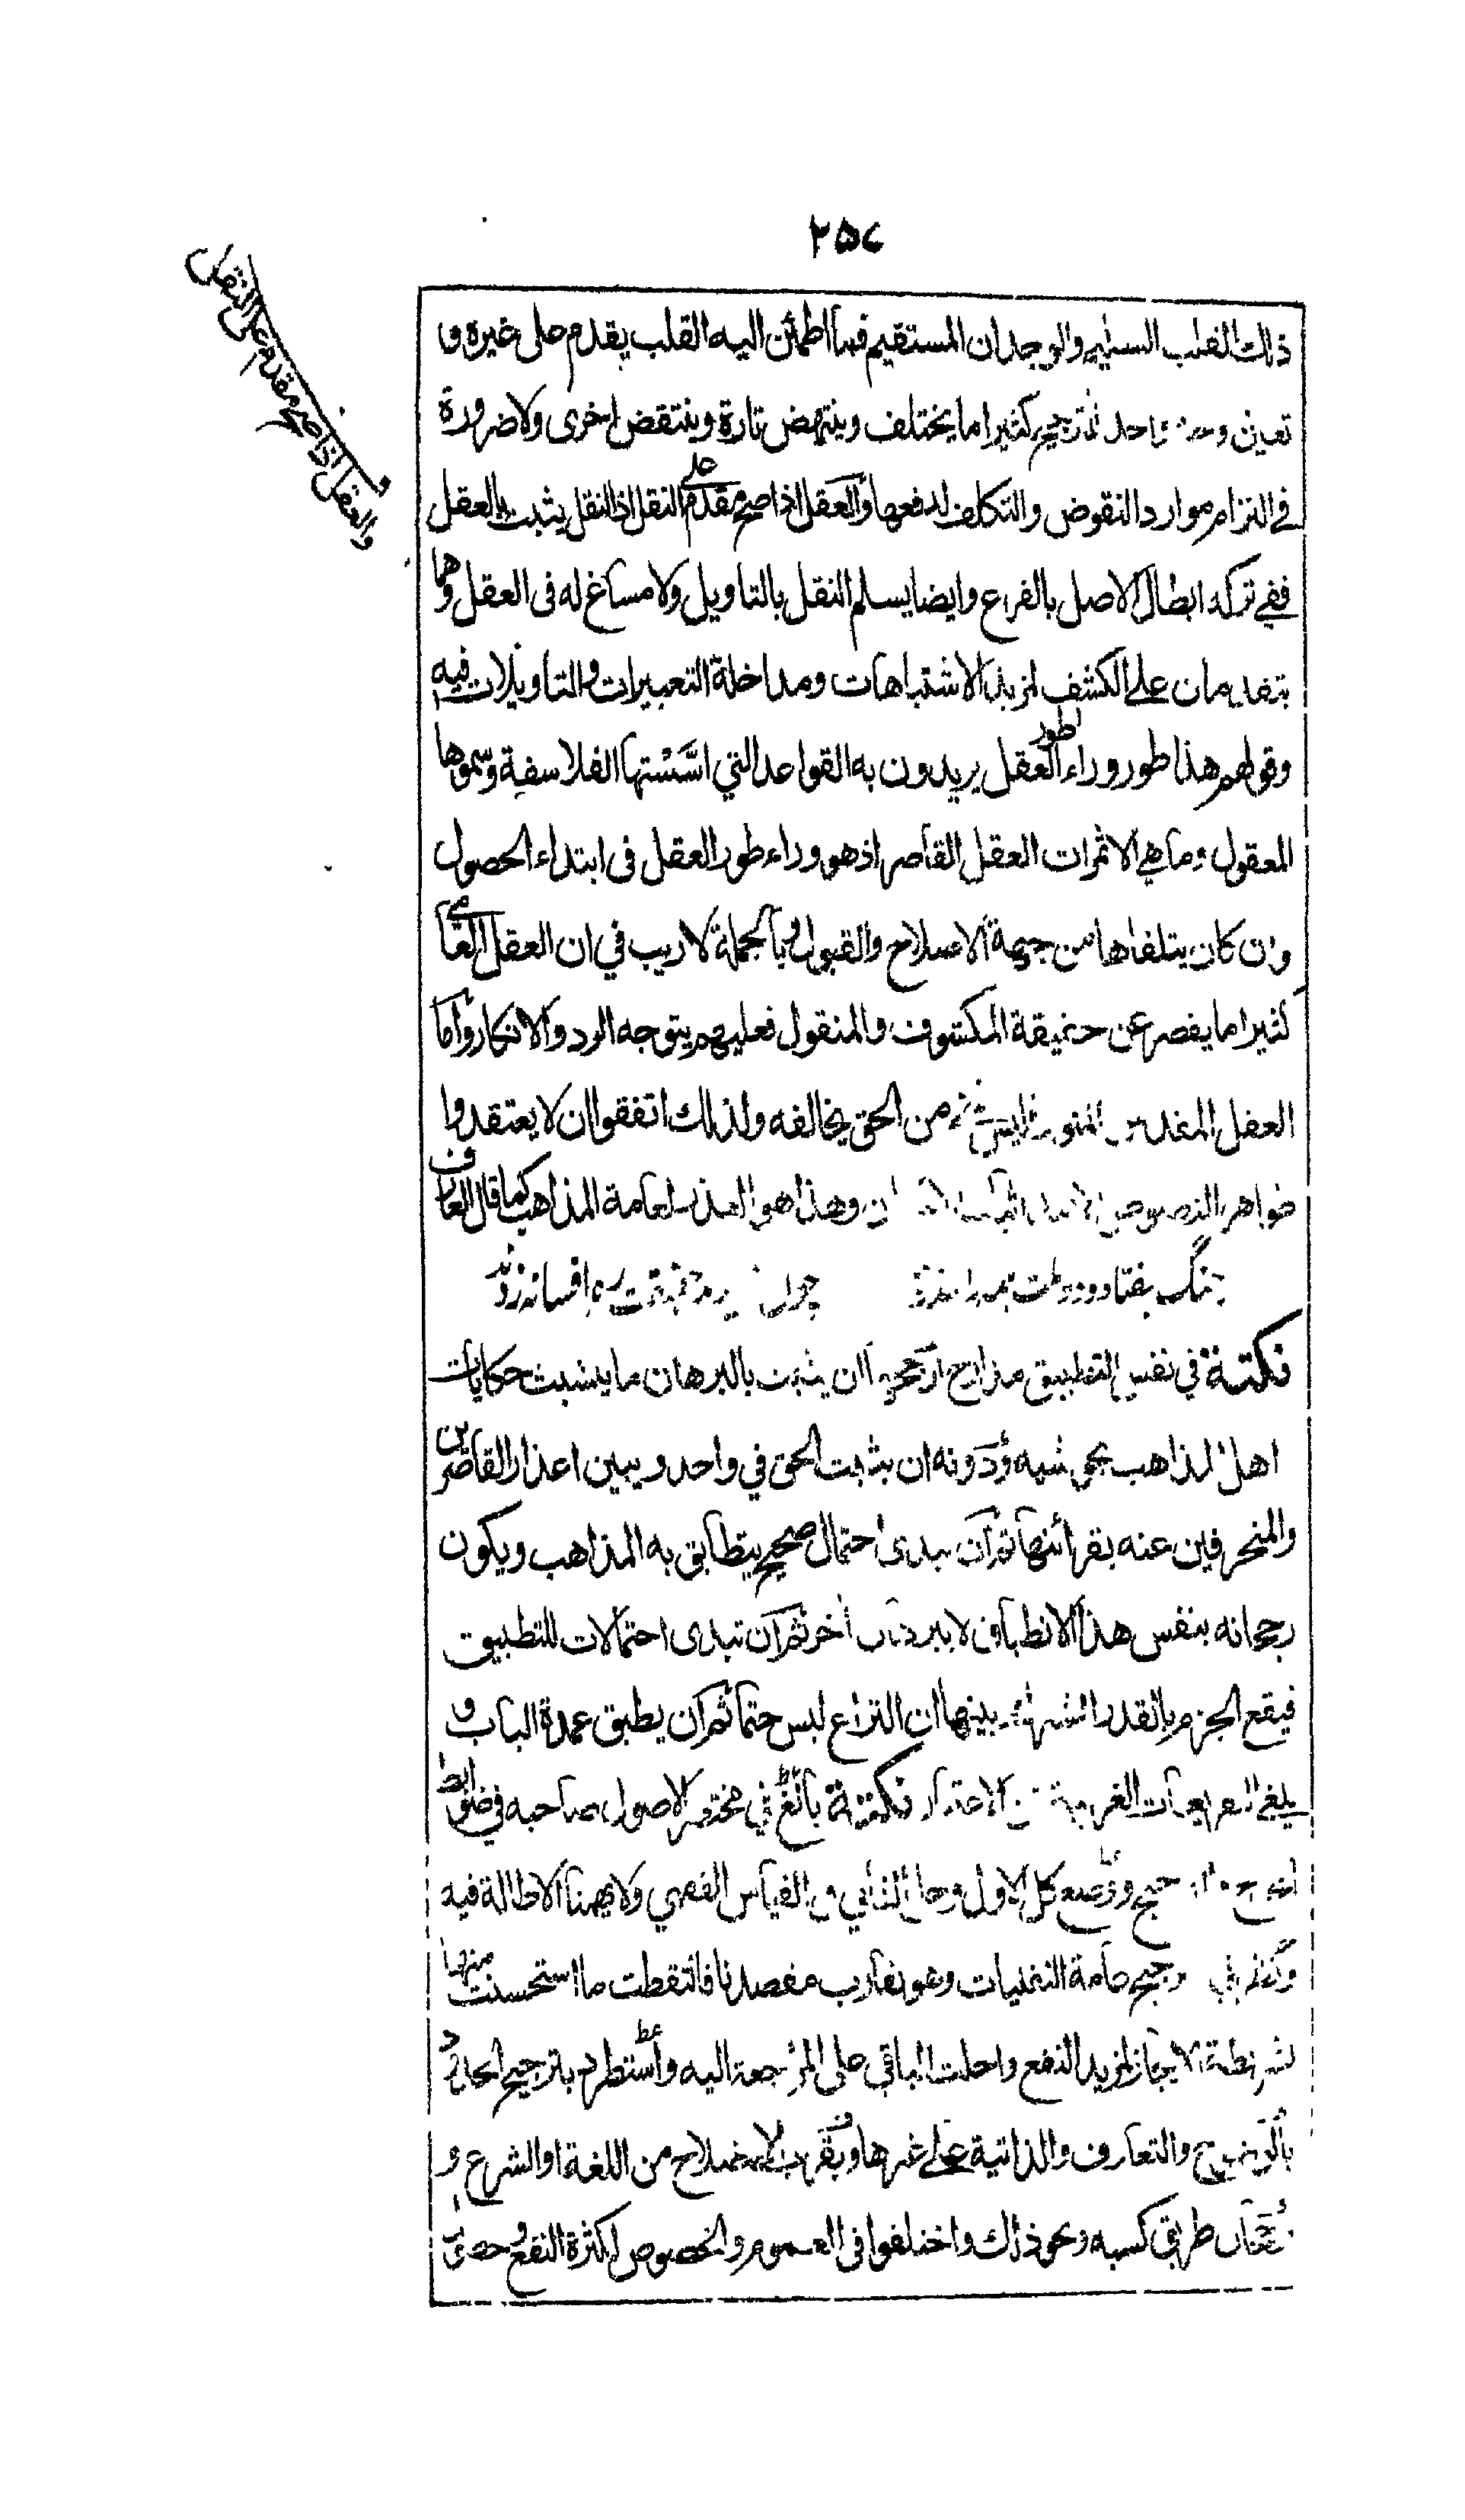 ٢٥٧
والعقل اذا صح مقدم على النقل
ذلك القلب السليم والوجدان المستقيم فما اطمأن اليه القلب يقدم على غيره و
تعيين واحد للترجيح كثيرا ما يختلف وينتهض تارة وينتقض اخرى ولا ضرورة
في التزام موارد النقوض والتكلف لدفعها والعقل اذا صح مقدم على النقل اذ النقل يثبت بالعقل
ففي تركه ابطال الاصل بالفرع وايضا يسلم النقل بالتاويل ولا مساغ له في العقل وهما
يتقدمان على الكشف لمزيد الاشتباهات ومداخلة التعبيرات والتاويلات فيه
وقولهم هذا طور وراء طور العقل يريدون به القواعد التي اسَّسْتها الفلاسفة وسموها
المعقول وما هي الا ثمرات العقل القاصر اذ هو وراء طور العقل في ابتداء الحصول
وان كان يتلقاها من جهة الاصلاح والقبول وبالجملة لا ريب في ان العقل العامى
كثيرا ما يقصر عن حقيقة المكشوف والمنقول فعليهم يتوجه الرد والانكار واما
العقل المنور فليس شئ من الحق يخالفه ولذلك اتفقوا ان لا يعتقدوا
ظواهر النصوص وهذا هو العذر لعامة المذاهب كما قال العارف
جنگ هفتاد ودو ملت همه را عذر بنه چون ندیدند حقیقت ره افسانه زدند
نكتة في نفس التطبيق مدارج ارجحها ان يثبت بالبرهان ما يتشبث حكايات
اهل المذاهب بحواشيه ودونه ان يثبت الحق في واحد ويبين اعذار القاصرين
والمنحرفين عنه بقرائنها ثم ان يبدى احتمال صحيح يتطابق به المذاهب ويكون
رجحانه بنفس هذا الانطباق لا ببرهان اخر ثم ان تبدى احتمالات للتطبيق
فيقع الجزم بالقدر المشترك بينها ان النزاع ليس حتما ثم ان يطبق عمدة الباب و
يلغى التفريعات الغريبة عن الاعتبار نكتة بالغ في مختصر الاصول صاحبه في ضوابط
الترجيح ووضع كل الاول وحال الثاني في القياس الفقهي ولا يهمنا الاطالة فيه
ترجيح عامة النقليات وهو يقارب مقصدنا فالتقطت ما استحسنت منها
شريطة الايجاز لمزيد النفع واحلت الباقي على المراجعة اليه واستطرد بترجيح الحدود
بالتوضيح والتعارف والذاتية على غيرها وبقرب الاصطلاح من اللغة او الشرع و
رجحان طريق كسبه ونحو ذلك واختلفوا في العموم والخصوص لكثرة النفع